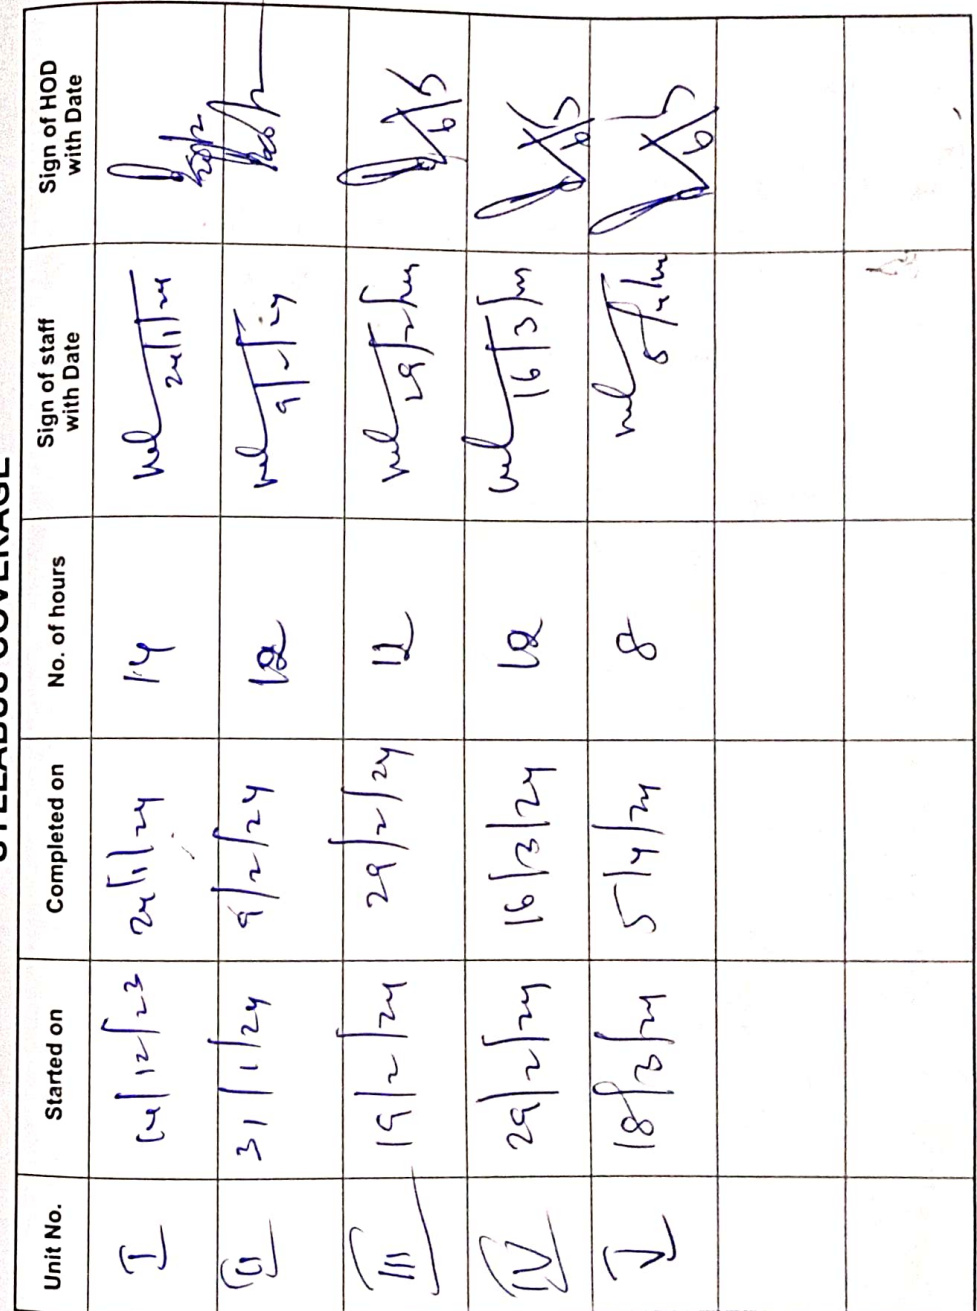 SYLLABUS COVERAGE
Unit No. Started on Completed on No. of hours Sign of staff with Date Sign of HOD with Date
I 14/12/23 24/1/24 14 24/1/24
II 31/1/24 9/2/24 12 9/2/24
III 19/2/24 29/2/24 12 29/2/24 6/5
IV 29/2/24 16/3/24 12 16/3/24 6/5
V 18/3/24 5/4/24 8 5/4/24 6/5